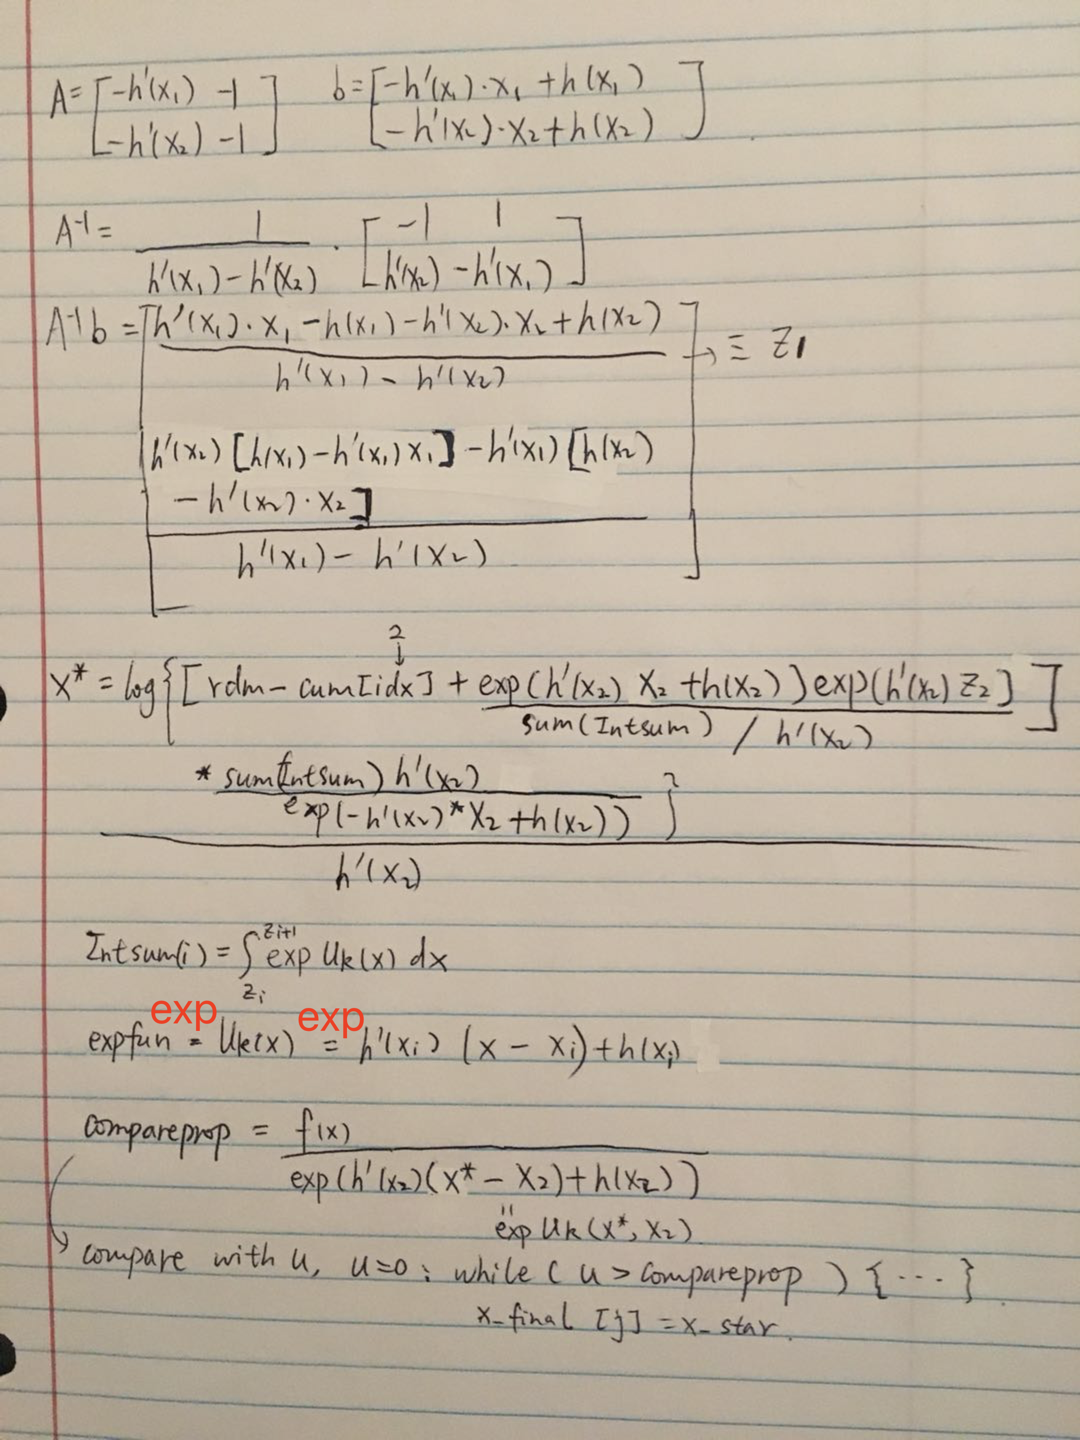 A = [-h'(x₁) -1    b = [-h'(x₁)·x₁ + h(x₁)
-h'(x₂) -1]    -h'(x₂)·x₂ + h(x₂)]
A⁻¹ = 1 / (h'(x₁) - h'(x₂)) · [-1 1
h'(x₂) -h'(x₁)]
A⁻¹b = [h'(x₁)·x₁ - h(x₁) - h'(x₂)·x₂ + h(x₂)
→ ≡ Z₁
h'(x₁) - h'(x₂)
h'(x₂)[h(x₁) - h'(x₁)x₁] - h'(x₁)[h(x₂)
- h'(x₂)·x₂]
h'(x₁) - h'(x₂)]
2
↓
x* = log{[rdm - cum[idx] + exp(h'(x₂) x₂ + h(x₂)) exp(h'(x₂) Z₂)]
sum(Intsum) / h'(x₂)
* sum(Intsum) h'(x₂)
exp(-h'(x₂)*x₂ + h(x₂)) }
h'(x₂)
Intsum(i) = ∫ Zᵢ Zᵢ₊₁ exp Uk(x) dx
exp exp
expfun = Uk(x) = h'(xᵢ) (x - xᵢ) + h(xᵢ)
compareprop = f(x)
exp(h'(x₂)(x* - x₂) + h(x₂))
" exp Uk(x*, x₂)
compare with u, u=0 : while ( u > compareprop ) { ... }
x_final [j] = x_star.